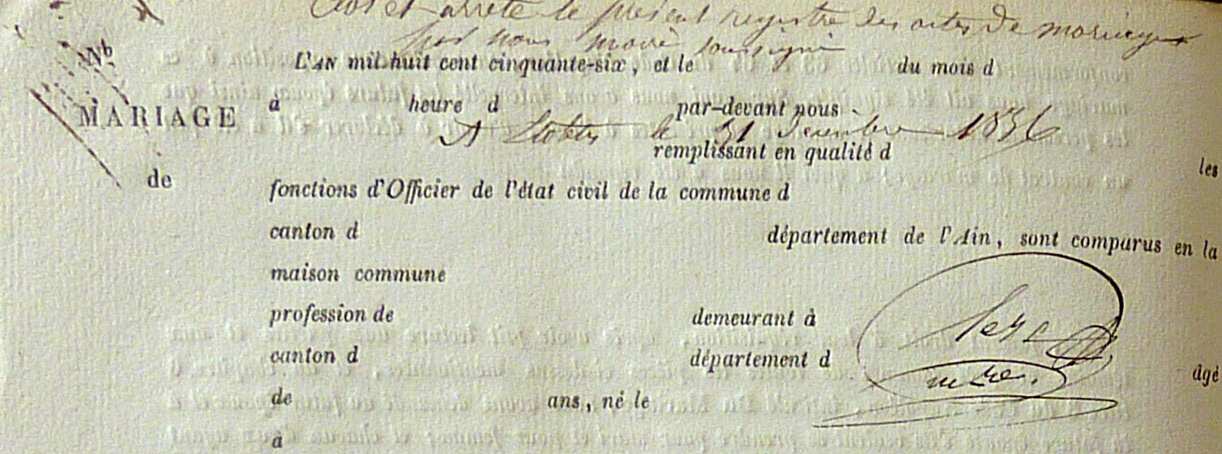 Clos et arrêté le présent registre des actes de mariages
par nous maire soussigné
No
L'AN mil huit cent cinquante-six, et le du mois d
MARIAGE
à heure d par-devant nous
A le 31 Décembre 1856
remplissant en qualité d les
de
fonctions d'Officier de l'état civil de la commune d
canton d département de l'Ain, sont comparus en la
maison commune
profession de demeurant à
canton d département d âgé
de ans, né le
à